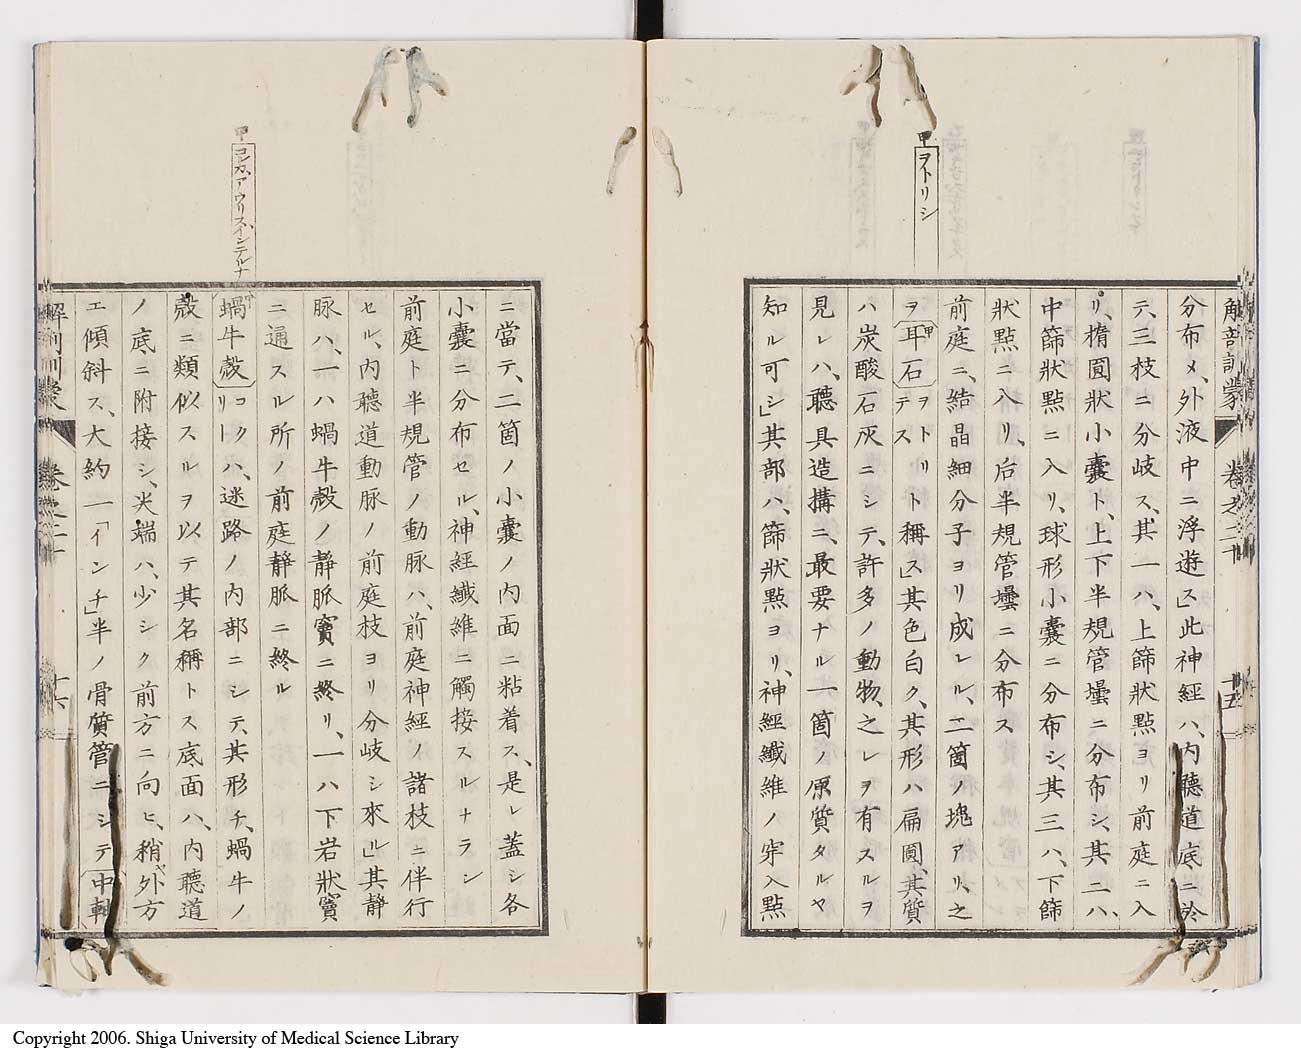 解剖訓蒙 卷之二十 十五
甲 ヲトリシ
分布メ、外液中ニ浮遊ス」此神經ハ、内聽道底ニ於
テ、三枝ニ分岐ス、其一ハ、上篩狀點ヨリ前庭ニ入
リ、楕圓狀小囊ト、上下半規管壜ニ分布シ、其二ハ、
中篩狀點ニ入リ、球形小囊ニ分布シ、其三ハ、下篩
狀點ニ入リ、后半規管壜ニ分布ス
前庭ニ、結晶細分子ヨリ成レル、二箇ノ塊アリ、之
ヲ耳石甲ヲトリテスト稱ス」其色白ク、其形ハ扁圓、其質
ハ炭酸石灰ニシテ、許多ノ動物、之レヲ有スルヲ
見レハ、聽具造搆ニ、最要ナル一箇ノ原質タルヤ
知ル可シ」其部ハ、篩狀點ヨリ、神經纖維ノ穿入點
ニ當テ、二箇ノ小囊ノ内面ニ粘着ス、是レ蓋シ各
小囊ニ分布セル、神經纖維ニ觸接スルナラン
前庭ト半規管ノ動脉ハ、前庭神經ノ諸枝ニ伴行
セル、内聽道動脉ノ前庭枝ヨリ分岐シ來ル」其靜
脉ハ、一ハ蝸牛殻ノ靜脈竇ニ終リ、一ハ下岩狀竇
ニ通スル所ノ前庭靜脈ニ終ル
甲 コンカ、アウリス、インテルナ
蝸牛殻甲コクリトハ、迷路ノ内部ニシテ、其形チ、蝸牛ノ
殻ニ類似スルヲ以テ其名稱トス底面ハ、内聽道
ノ底ニ附接シ、尖端ハ、少シク前方ニ向ヒ、稍ヤ外方
エ傾斜ス、大約一「インチ」半ノ骨質管ニシテ中軸
解剖訓蒙 卷之二十 十六
Copyright 2006. Shiga University of Medical Science Library